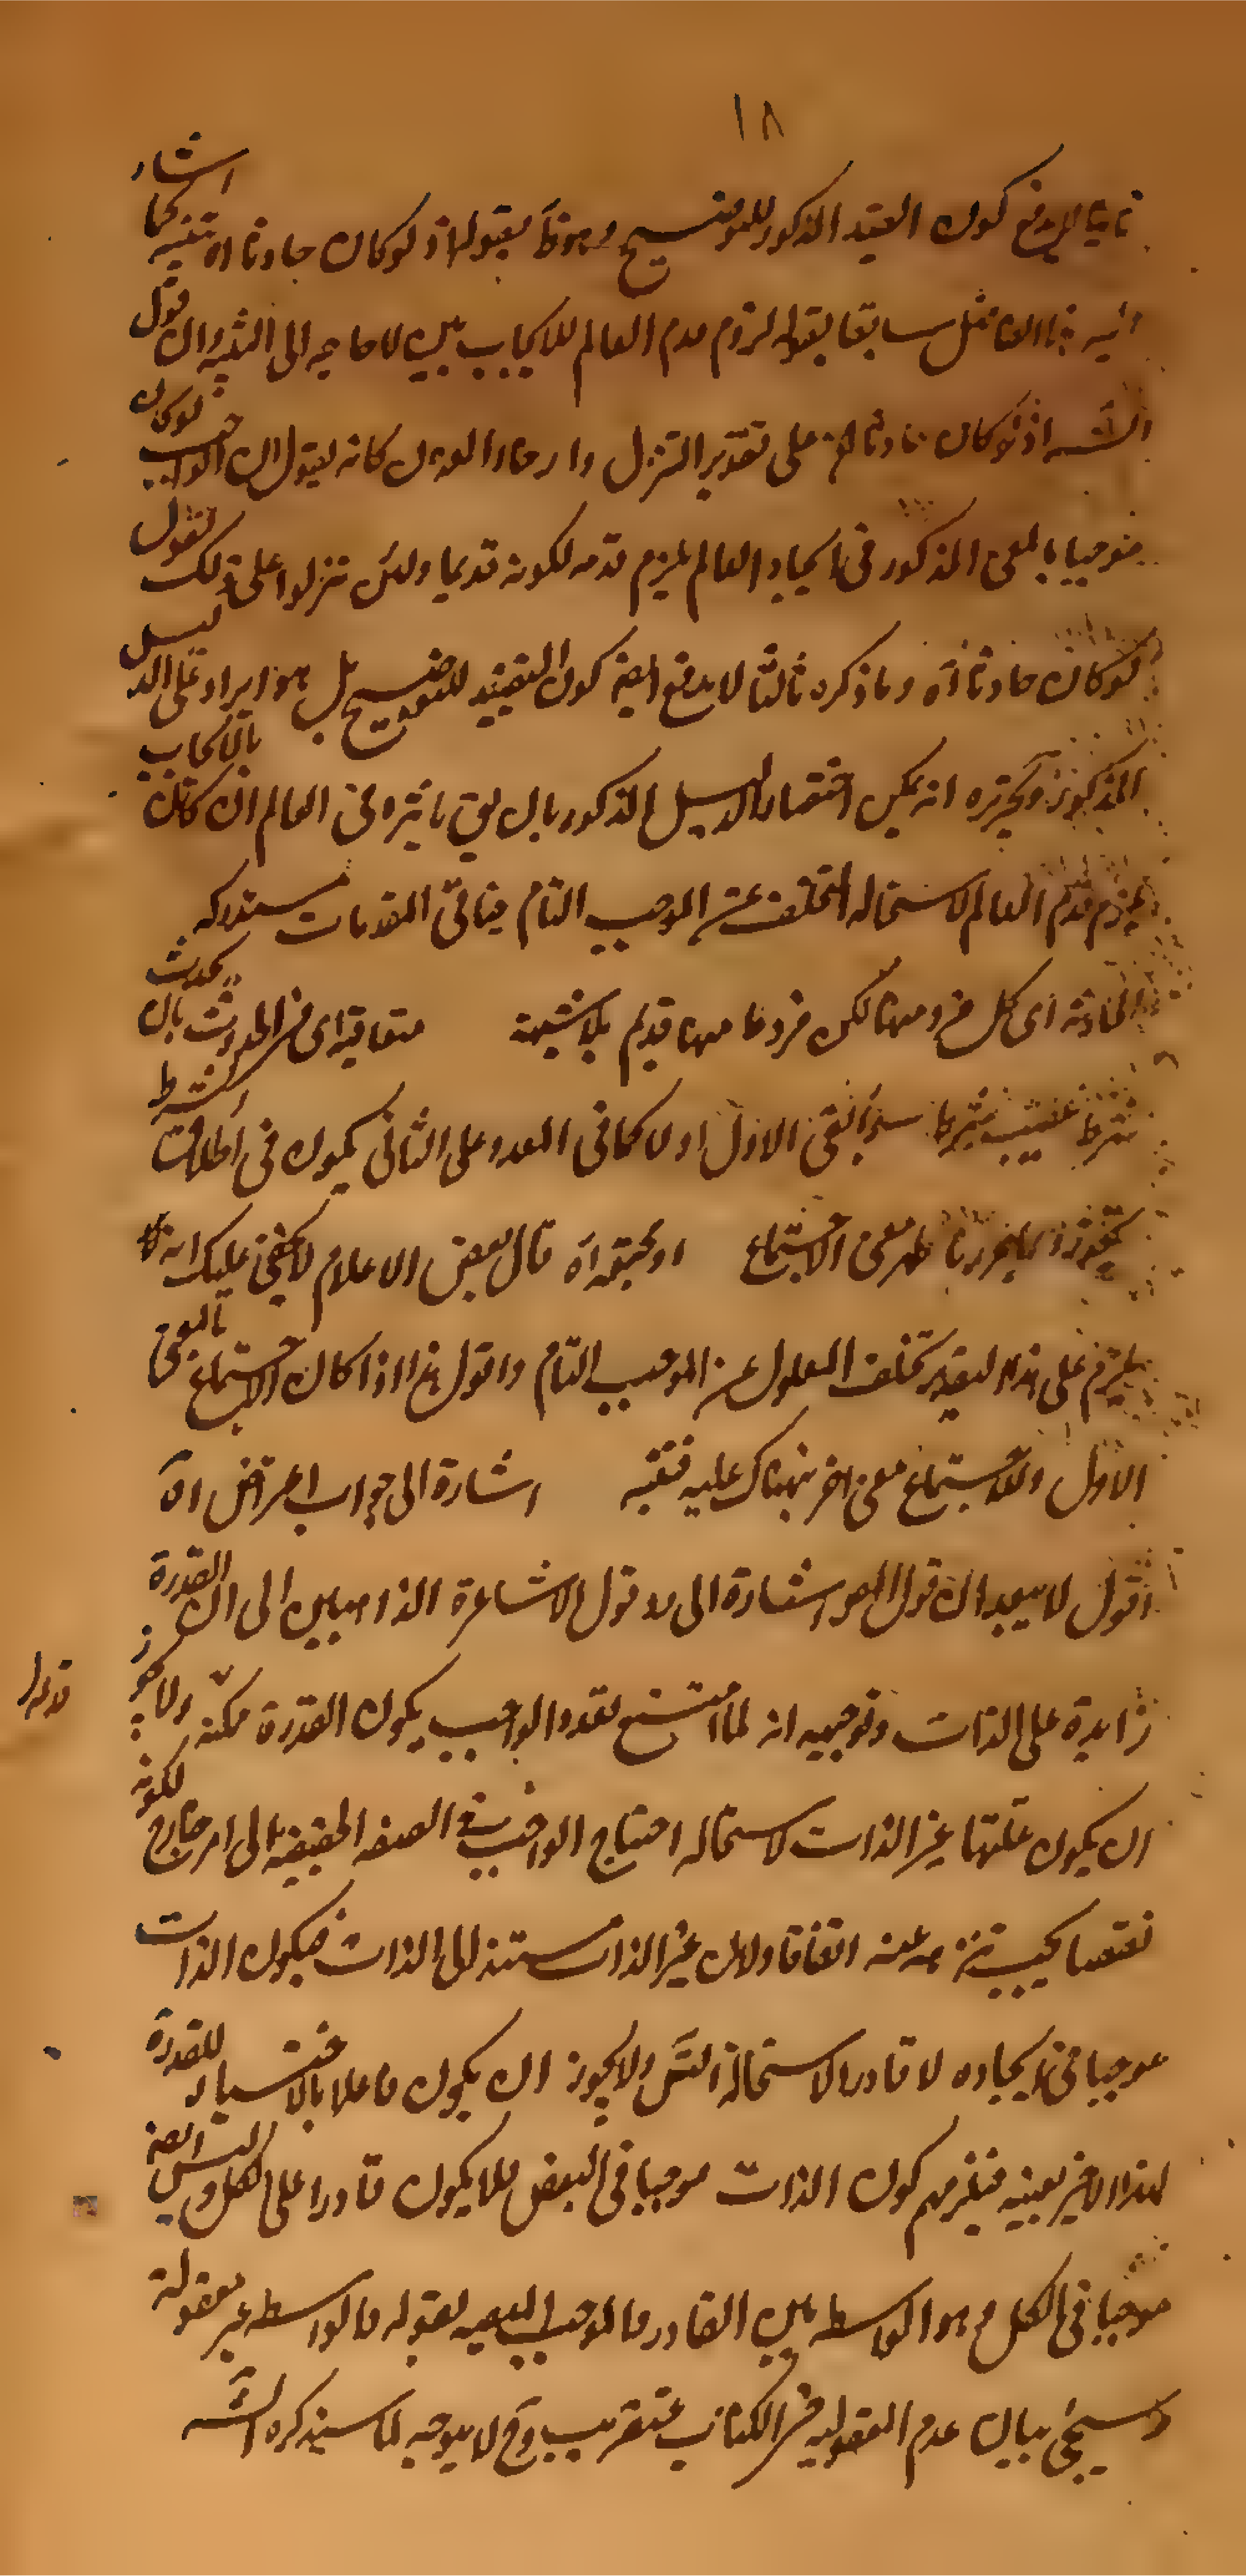 ١٨
ثانيا لا يدفع كون القيد المذكور للتوضيح وهو ظ بقوله اذ لو كان حادثا اه تنبيه كما اشار
اليه هذا الفاضل سابقا بقوله لزوم قدم العالم للايجاب بين لا حاجه الى التنبيه وان قول
الشه اذ لو كان حادثا الخ على تقدير التنزل وارخاء العنان كانه يقول ان الواجب لو كان
موجبا بالمعنى المذكور فى ايجاد العالم يلزم قدمه لكونه قديما ولئن تنزلوا على ذلك نقول
لو كان حادثا اه وما ذكره ثالثا لا يدفع ايضا كون التقييد للتوضيح بل هو ايراد على الدليل
المذكور وتحريره انه يمكن اختصار الدليل المذكور بان يق تاثيره فى العالم ان كان بالايجاب
يلزم قدم العالم لاستحاله التخلف عن الموجب التام فباقى المقدمات مستدركه
الحادثه اى كل فرد منها لكن فردما منها قديم بلا شبهة متعاقبة اى فى الحدوث بان يحدث
شرط عقيب شرط سواء بقى الاول او لا كما فى المعد وعلى الثانى يكون فى اطلاق الشرط
تجوز وبما حررنا ظهر معنى الاجتماع او مجتمعة اه قال بعض الاعلام لا يخفى عليك انه لا
يلزم على هذا التقدير تخلف المعلول عن الموجب التام واقول هذا اذا كان الاجتماع بالمعنى
الاول وللاجتماع معنى اخر نبهناك عليه فتنبه اشارة الى جواب اعتراض اه
اقول لا يبعد ان قول المص اشارة الى رد قول الاشاعرة الذاهبين الى ان القدرة
زايدة على الذات وتوجيهه انه لما امتنع تعدد الواجب يكون القدرة ممكنة ولا يجوز
ان يكون علتها غير الذات لاستحاله احتياج الواجب فى الصفه الحقيقيه الى امر خارج لكونه
نقصا يجب تنزيهه عنه اتفاقا ولان غير الذات مستند الى الذات فيكون الذات
موجبا فى ايجاده لا قادرا لاستحالة التس ولا يجوز ان يكون فاعلا بالاختيار للقدرة
لهذا الاخير بعينه فيلزمهم كون الذات موجبا فى البعض فلا يكون قادرا على الكل وليس ايضا
موجبا فى الكل وهو الواسطه بين القادر والموجب اليه بقوله والواسطه غير معقولة
وسيجئ بيان عدم المعقوليه فى الكتاب عنقريب وح لا يتوجه لما سيذكره الشه
قوله